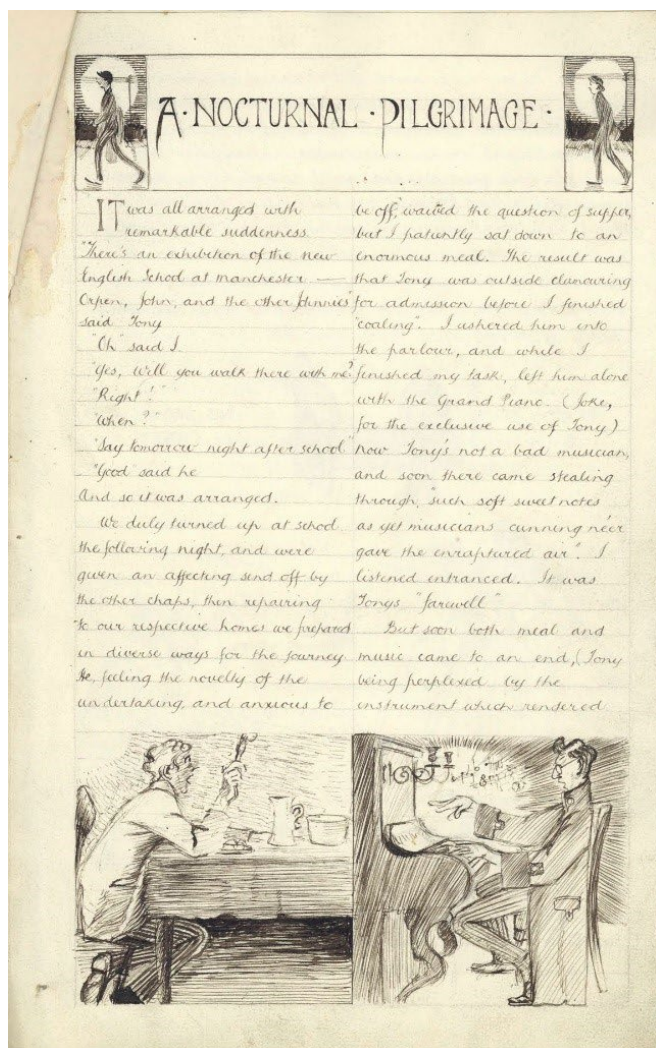 A·NOCTURNAL·PILGRIMAGE·
IT was all arranged with
remarkable suddenness.
"There's an exhibition of the new
English School at Manchester —
Orpen, John, and the other Johnnies"
said Tony
"Oh" said I
"Yes, Will you walk there with me?
"Right!"
"When?"
"Say tomorrow night after school"
"Good said he
And so it was arranged.
We duly turned up at school
the following night, and were
given an affecting send off by
the other chaps, then repairing
to our respective homes we prepared
in diverse ways for the journey
He, feeling the novelty of the
undertaking, and anxious to
be off, waived the question of supper,
but I patiently sat down to an
enormous meal. The result was
that Tony was outside clamouring
for admission before I finished
"coaling". I ushered him into
the parlour, and while I
finished my task, left him alone
with the Grand Piano. (Joke,
for the exclusive use of Tony)
Now Tony's not a bad musician,
and soon there came stealing
through, "such soft sweet notes
as yet musicians cunning ne'er
gave the enraptured air". I
listened entranced. It was
Tonys "farewell"
But soon both meal and
music came to an end, (Tony
being perplexed by the
instrument which rendered